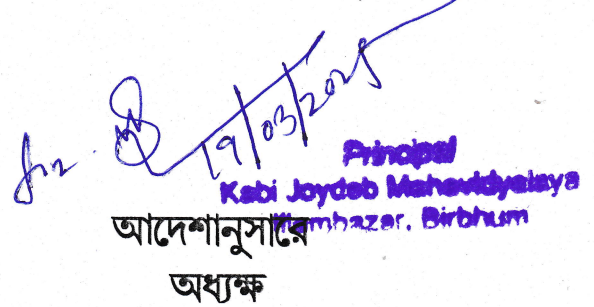 19/03/2025
Principal
Kabi Joydeb Mahavidyalaya
Illambazar, Birbhum
আদেশানুসারে
অধ্যক্ষ